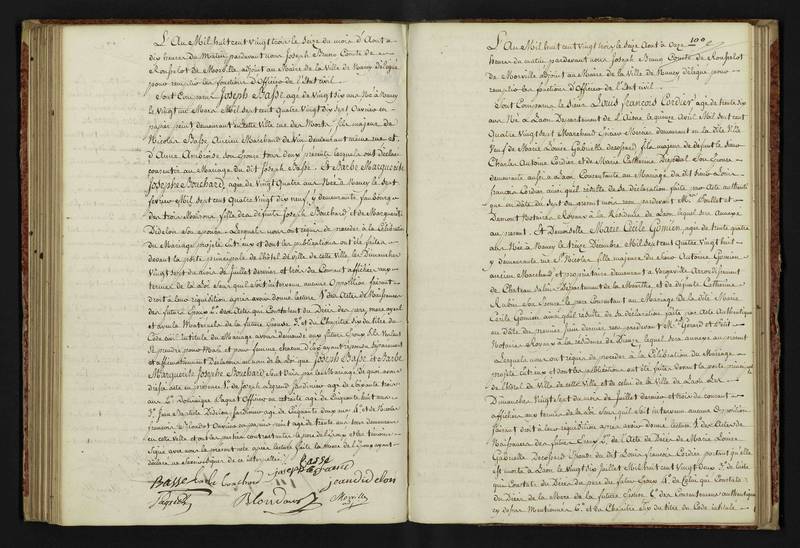 L'An Mil huit cent vingt trois le Seize du mois d'Aout à
dix heures du Matin pardevant nous Joseph Bruno Comte de
Rouffelot de Morville adjoint au Maire de la Ville de Nancy délégué
pour remplir les fonctions d'Officier de l'Etat civil.
Sont Comparus Joseph Basse agé de Vingt six ans Né à Nancy
le Vingt un Mars Mil Sept cent Quatre Vingt dix sept Ouvrier en
papier peint demeurant en cette Ville rue des Morts fils majeur de
Nicolas Basse Ancien Marchand de Vin demeurant même rue et
d'Anne Ambroise son Epouse tous deux présents lesquels ont déclaré
consentir au Mariage du dit Joseph Basse. Et Barbe Marguerite
Josephe Bouchard, agée de Vingt Quatre ans Née à Nancy le Sept
février Mil Sept cent Quatre Vingt dix neuf, y demeurante faubourg
des trois Maisons, fille des défunts Joseph Bouchard et de Marguerite
Didelon son épouse. Lesquels nous ont requis de procéder à la Célébration
du Mariage projeté entr'eux et dont les publications ont été faites
devant la porte principale de l'hôtel de ville de cette Ville, les Dimanches
Vingt sept du mois de Juillet dernier et trois du Courant affichées aux
termes de la loi. Sans qu'il soit intervenu aucune Opposition faisant
droit à leur réquisition après avoir donné lecture 1° des Actes de Naissances
des futurs Epoux 2° des Actes qui Constatent du Décès des père, mère ayeul
et ayeule Maternels de la future Epouse 3° et du Chapitre Six du titre du
Code civil intitulé du Mariage avons demandé aux futurs Epoux s'ils Veulent
se prendre pour Mari et pour femme chacun d'eux ayant répondu séparément
et affirmativement Déclarons au nom de la loi que Joseph Basse et Barbe
Marguerite Josephe Bouchard sont Unis par le Mariage de quoi avons
dressé acte en présence 1° de Joseph Legrand Jardinier agé de Soixante trois
ans 2° Dominique Paquet Officier en retraite agé de Cinquante huit ans
3° Jean Baptiste Didelon Jardinier agé de Cinquante deux ans 4° et de Nicolas
François Blondot Ouvrier en papier peint agé de trente ans tous demeurant
en cette Ville et ont les parties contractantes, le père de l'Epoux et les témoins
Signé avec nous le présent acte après lecture faite la Mère de l'Epoux ayant
déclaré ne savoir signer de ce interpellée.
Basse
joseph Basse
Basse
jean didelon
Paquet
Blondot
Morville
100
L'An Mil huit cent Vingt trois le Seize Aout à Onze
heures du matin pardevant nous Joseph Bruno Comte de Rouffelot
de Morville adjoint au Maire de la Ville de Nancy délégué pour
remplir les fonctions d'Officier de l'Etat civil.
Sont Comparus le Sieur Louis François Cordier agé de trente six
ans Né à Laon Département de l'Aisne le quinze Avril Mil Sept cent
Quatre Vingt sept Marchand Epicier Mercier demeurant en la dite Ville
Veuf de Marie Louise Gabrielle fils majeur de défunt le Sieur
Charles Antoine Cordier et de Marie Catherine son Epouse
demeurante aussi à Laon Consentante au Mariage du dit Louis
François Cordier ainsi qu'il résulte de sa déclaration faite par Acte authentique
en date du Sept du présent mois reçu pardevant Mes. et
Demont Notaires Royaux à la Résidence de Laon lequel sera annexé
au présent. Et Demoiselle Marie Cécile Gomien, agée de trente quatre
ans Née à Nancy le treize Décembre Mil Sept cent Quatre Vingt huit
y demeurante rue St. Nicolas fille majeure du Sieur Antoine Gomien
ancien Marchand et propriétaire demeurant à Arrondissement
de Chateau Salins Département de la Meurthe, et de défunte Catherine
Rubin son Epouse le père Consentant au Mariage de la dite Marie
Cécile Gomien ainsi qu'il résulte de sa déclaration faite par Acte Authentique
en date du premier Juin dernier reçu pardevant Me. Gérard et
Notaires Royaux à la résidence de Dieuze lequel sera annexé au présent.
Lesquels nous ont requis de procéder à la Célébration du Mariage
projeté entr'eux et dont les publications ont été faites devant la porte principale
de l'hôtel de Ville de cette Ville et de celui de la Ville de Laon les
Dimanches Vingt sept du mois de Juillet dernier et trois du courant
affichées aux termes de la loi sans qu'il soit intervenu aucune Opposition
faisant droit à leur réquisition après avoir donné lecture 1° des Actes de
Naissances des futurs Epoux 2° de l'Acte de Décès de Marie Louise
Gabrielle Epouse du dit Louis François Cordier portant qu'elle
est morte à Laon le Vingt six Juillet Mil huit cent Vingt deux 3° de l'acte
qui Constate du Décès du père du futur Epoux 4° de celui qui Constate
du Décès de la Mère de la future Epouse 5° des Consentemens authentiques
cy devant Mentionnés 6° et du Chapitre Six du titre du Code intitulé